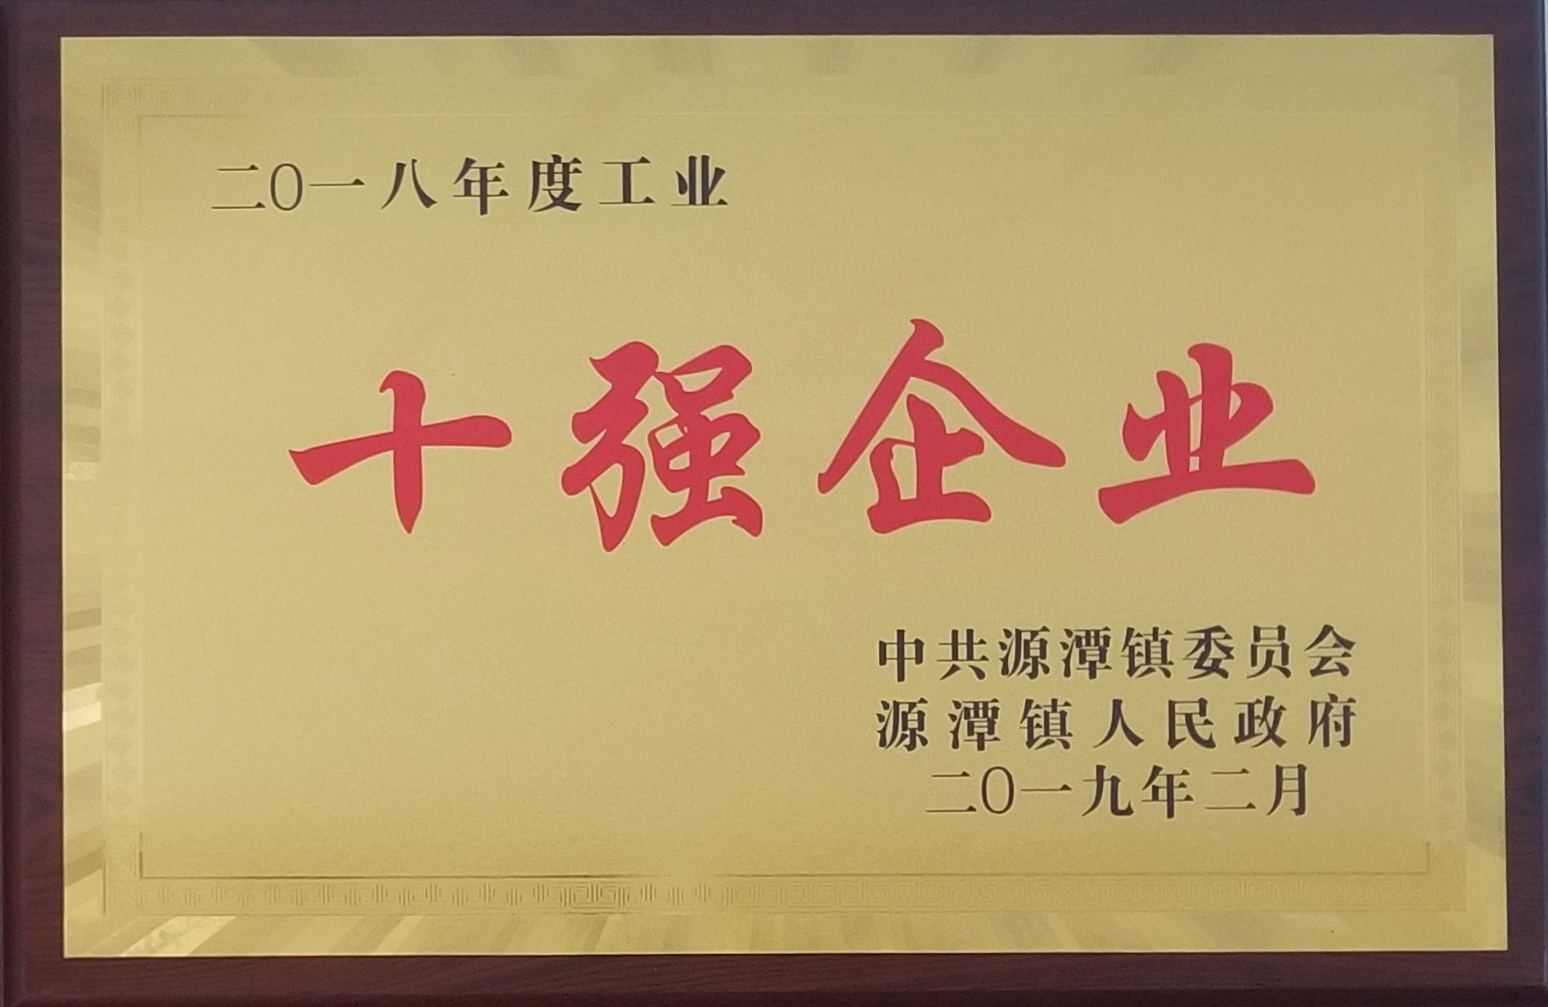 二〇一八年度工业
十强企业
中共源潭镇委员会
源潭镇人民政府
二〇一九年二月